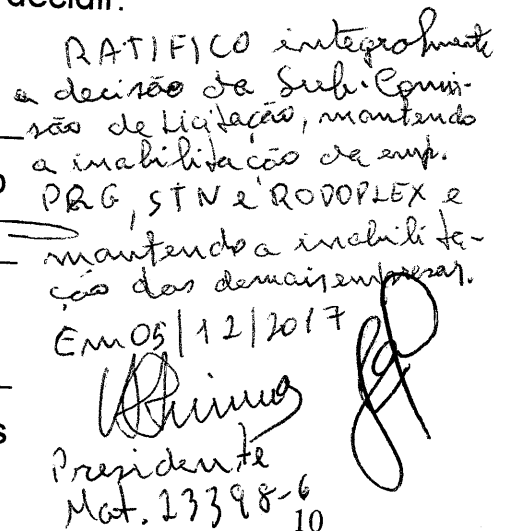 decidir.
RATIFICO integralmente
a decisão da Sub-Comis-
são de Licitação, mantendo
a inabilitação da emp.
PRG, STN e RODOPLEX e
mantendo a inabilita-
ção das demais empresas.
Em 05/12/2017
Presidente
Mat. 23398-6
10